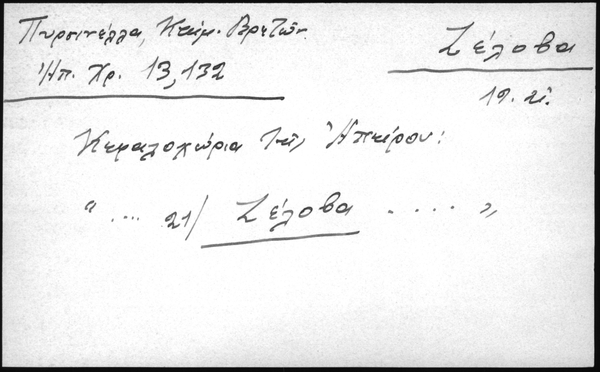 Πυρσινέλλα, Κτήμ. Βρετῶν
Ἠπ. Χρ. 13,132
Ζέλοβα
19. αἰ.
Κεφαλοχώρια τῆς Ἠπείρου:
“ .... 21/ Ζέλοβα ..... „